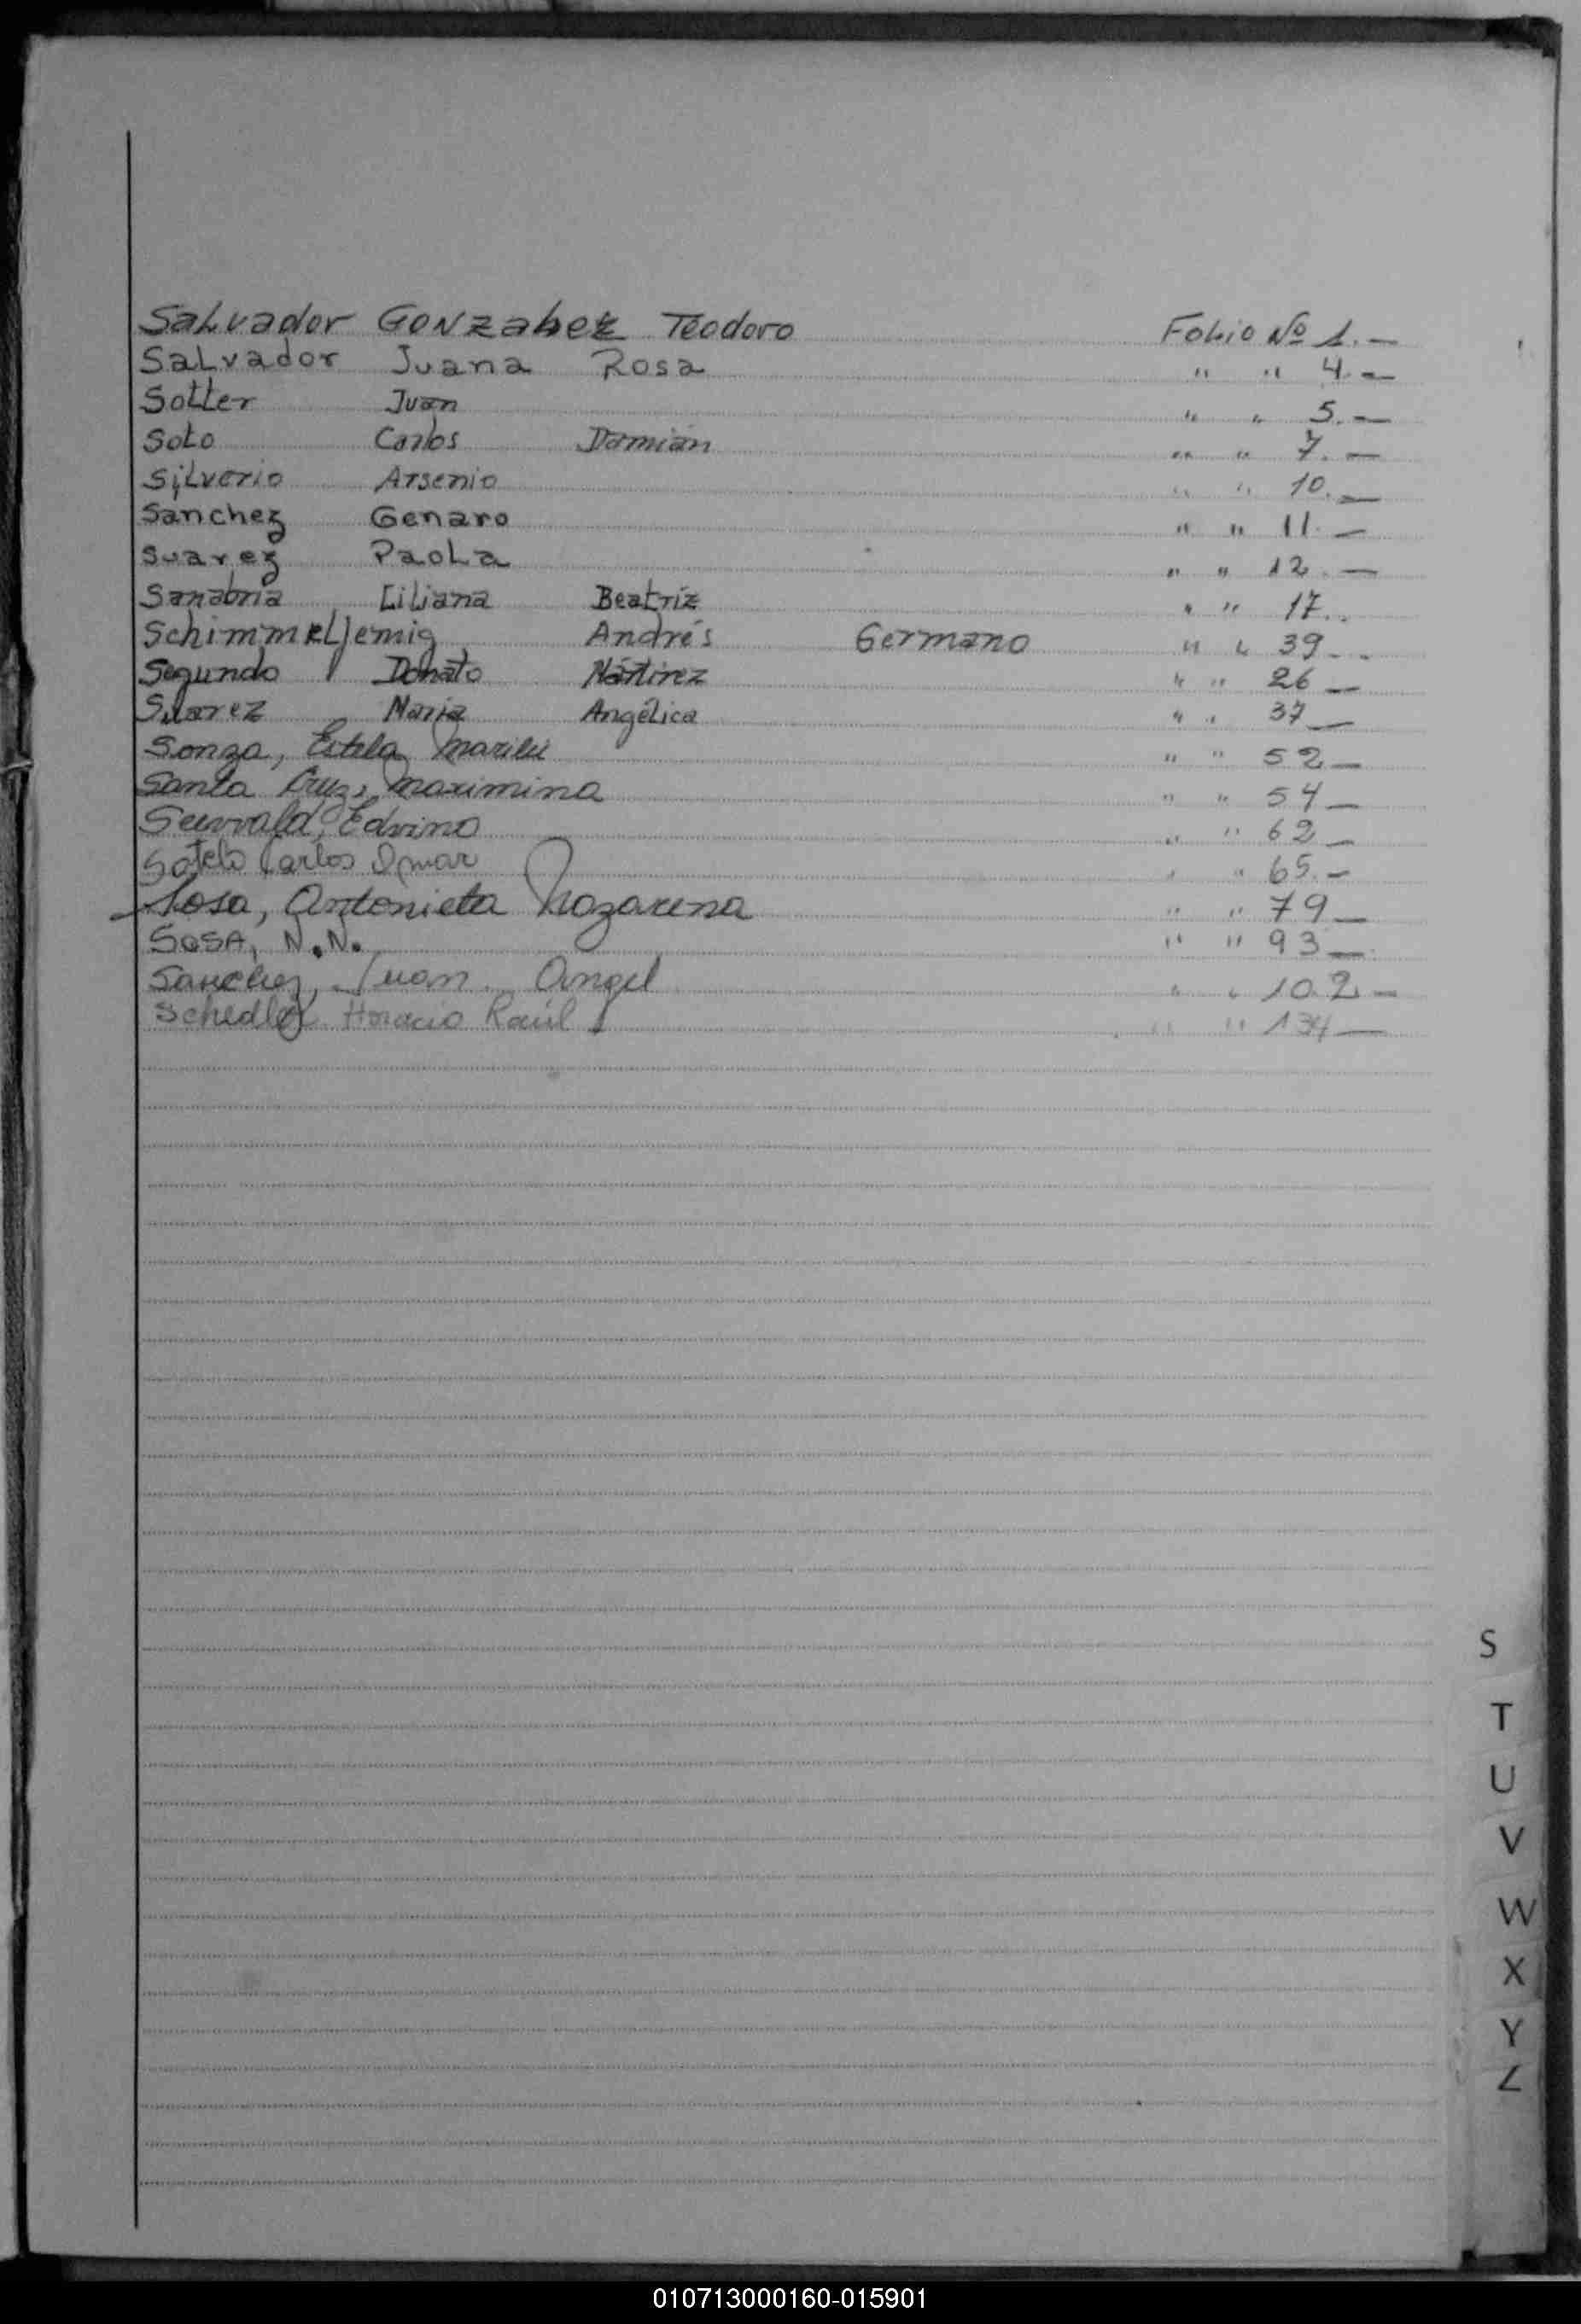 Salvador Gonzalez Teodoro Folio Nº 1.—
Salvador Juana Rosa " " 4.—
Sotter Juan " " 5.—
Soto Carlos Damián " " 7.—
Silverio Arsenio " " 10.—
Sanchez Genaro " " 11.—
Suarez Paola " " 12.—
Sanabria Liliana Beatríz " " 17..
Andrés Germano " " 39...
Segundo Donato Mártirez " " 26—
Suarez Maria Angélica " " 37—
Sonza, Estela Marilú " " 52—
Santa Cruz, Maximina " " 54—
Edvino " " 62—
Sotelo Carlos Omar " " 65.—
Sosa, Antonieta Nazarena " " 79—
SOSA, N.N. " " 93—
Sanchez, Juan Angel " " 102—
Schedler Horacio Raúl " " 134—
S
T
U
V
W
X
Y
Z
010713000160-015901